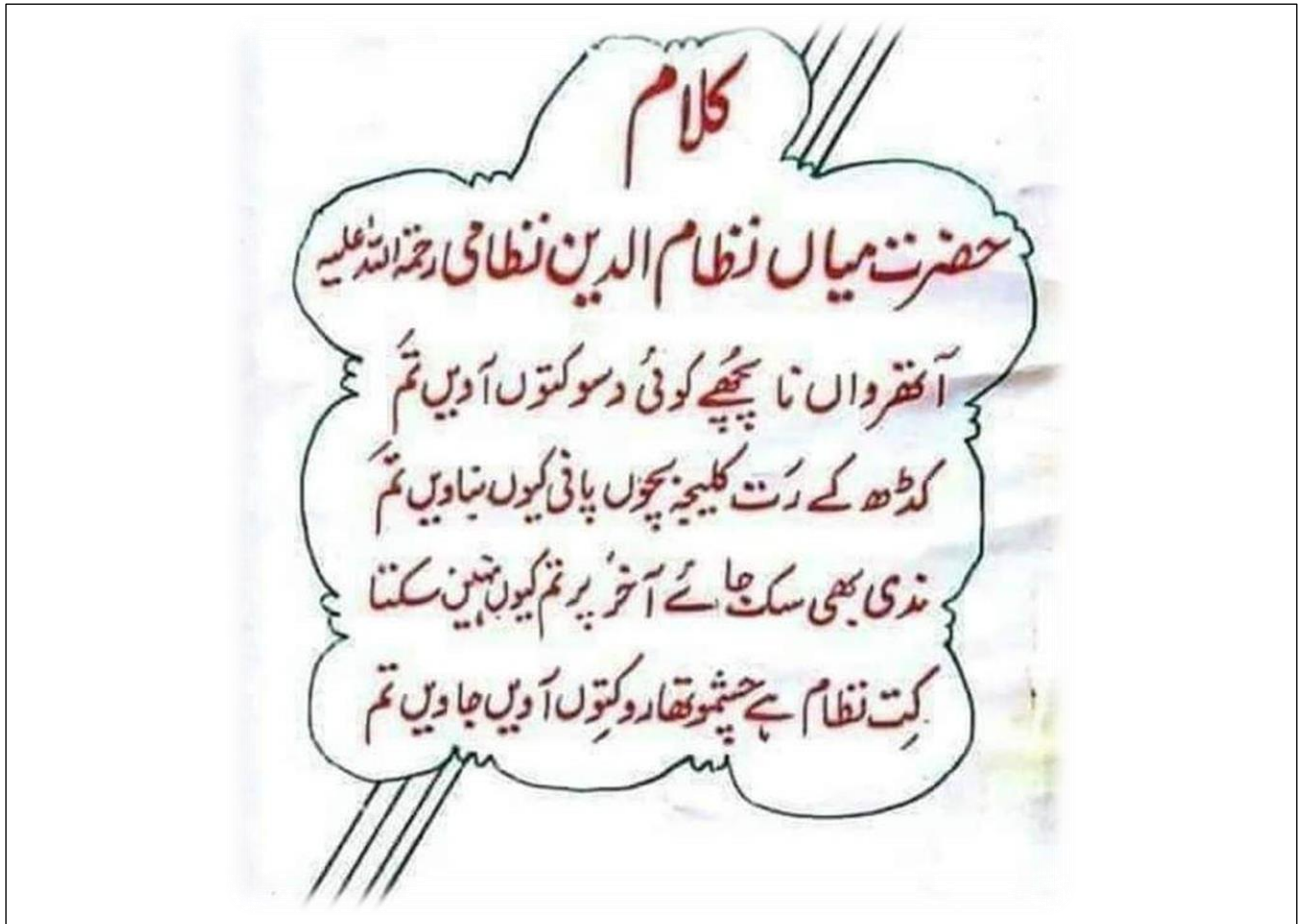 کلام
حضرت میاں نظام الدین نظامی رحمۃ اللہ علیہ
آنقرواں نا پچُھے کوئی دسو کتوں آویں تُم
کڈھ کے رَت کلیجہ بچوں پانی کیوں بناویں تُم
ندی بھی سک جائے آخرُ پر تم کیوں نہیں سکتا
کِت نظام ہے چشموتھارو کِتوں آویں جاویں تم